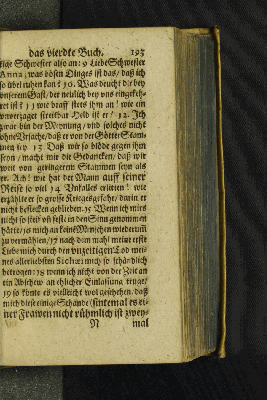 das vierdte Buch. 193
tige Schwester also an: 9 Liebe Schwester
Anna, was bösen Dinges ist das/ daß ich
so übel ruhen kan? 10. Was deucht dir bey
unserem Gast/ der neulich bey uns eingekeh-
ret ist? 11 wie brafft stets ihm an! wie ein
unverzagter streitbar Held ist er! 12. Ich
zwar bin der Meynung/ und solches nicht
ohne Ursache/ daß er von der Götter Stam-
men sey. 13 Daß wir so blöde gegen ihm
seyn/ macht mir die Gedancken/ daß wir
weit von geringerem Stammen seyn als
er. Ach! wie hat der Mann auff seiner
Reise so viel 14 Unfalles erlitten! wie
erzählte er so grosse Kriegesgefahr/ darin er
nicht stecken geblieben. 15 Wenn ich mirs
nicht so steiff uñ fest in dem Sinn genommen
hätte/ 16 mich an keinē Menschen wiederum
zu vermählen/ 17 nach dem mahl meine erste
Liebe mich durch den unzeitigen Tod mei-
nes allerliebsten Sichæi mich so schändlich
betrogen: 18 wenn ich nicht von der Zeit an
ein Abschew an ehlicher Einlassung truge/
19 so könte es vielleicht wol geschehen/ daß
mich diese einige Schande (sintemal es ei-
ner Frawen nicht rühmlich ist zwey-
N mal